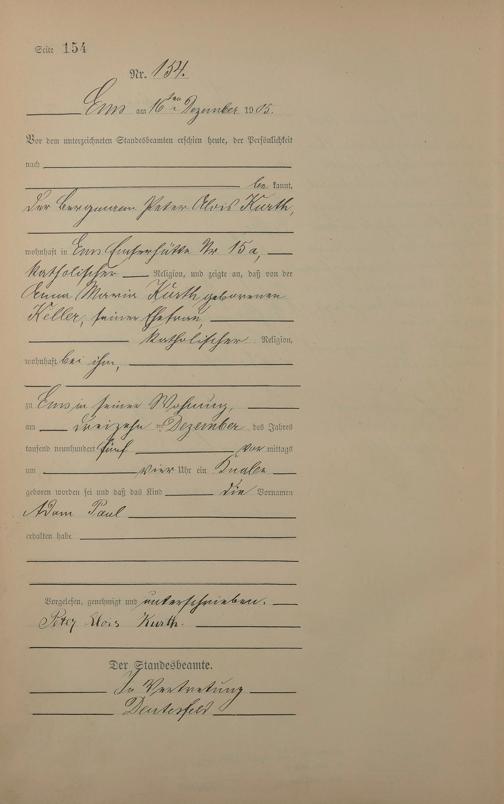 Seite 154
Nr. 154.
Ems am 16ten Dezember 1905.
Vor dem unterzeichneten Standesbeamten erschien heute, der Persönlichkeit
nach
be kannt,
der Bergmann Peter Alois Kurth,
wohnhaft in Ems Emserhütte Nr 15a,
katholischer Religion, und zeigte an, daß von der
Anna Maria Kurth geborenen
Keller, seiner Ehefrau,
katholischer Religion,
wohnhaft bei ihm,
zu Ems in seiner Wohnung,
am dreizehnten Dezember des Jahres
tausend neunhundert fünf vor mittags
um vier Uhr ein Knabe
geboren worden sei und daß das Kind die Vornamen
Adam Paul
erhalten habe
Vorgelesen, genehmigt und unterschrieben.
Peter Alois Kurth.
Der Standesbeamte.
In Vertretung